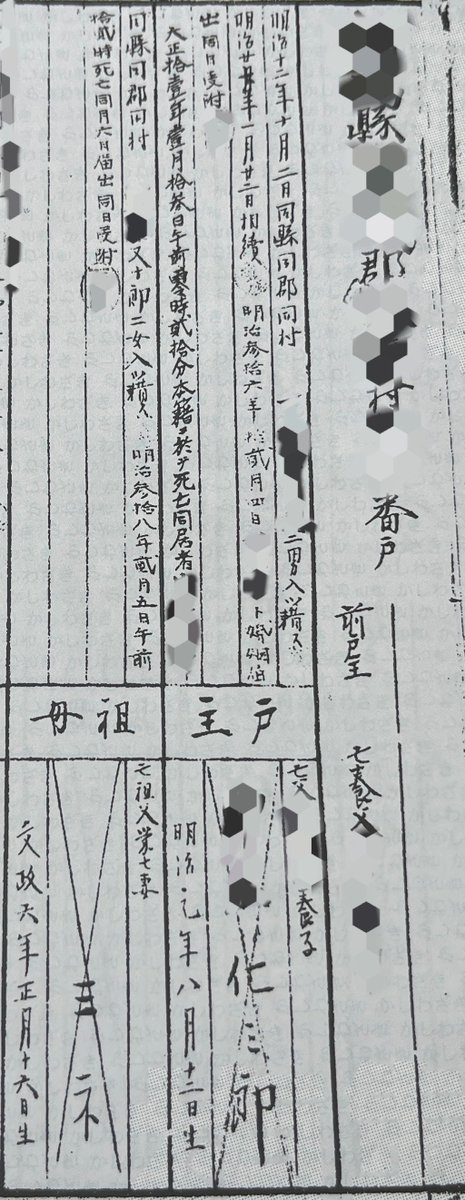 縣 郡 村 番戸
前戸主 亡養父
明治十二年十月二日同縣同郡同村 二男入籍ス
明治廿五年一月廿二日相續 明治参拾六年拾弐月四日 ト婚姻届
出同日受附
大正拾壹年壹月拾参日午前零時貳拾分本籍ニ於テ死亡同居者
戸主
亡父 養子
仁三郎
明治元年八月十二日生
同縣同郡同村 又十郎二女入籍ス 明治参拾八年貳月五日午前
拾貳時死亡同月六日届出同日受附
祖母
亡祖父 七妻
ミネ
文政六年正月十六日生